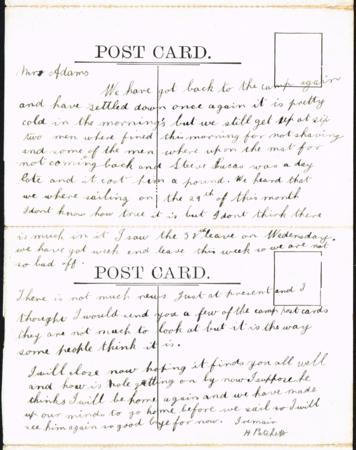 POST CARD.
Mrs Adams
We have got back to the camp again
and have settled down once again it is pretty
cold in the mornings but we still get up at six
two men where fined this morning for not shaving
and some of the men where upon the mat for
not coming back and Steve Lucas was a day
late and it cost him a pound. We heard that
we where sailing on the 29th of this month
I dont know how true it is but I dont think there
is much in it I saw the 38th leave on Wednesday.
we have got week end leave this week so we are not
so bad off.
POST CARD.
There is not much news Just at present and I
thought I would send you a few of the camp post cards
they are not much to look at but it is the way
some people think it is.
I will close now hoping it finds you all well
and how is getting on by now I suppose he
thinks I will be home again and we have made
up our minds to go home before we sail so I will
see him again so good bye for now. I remain
H